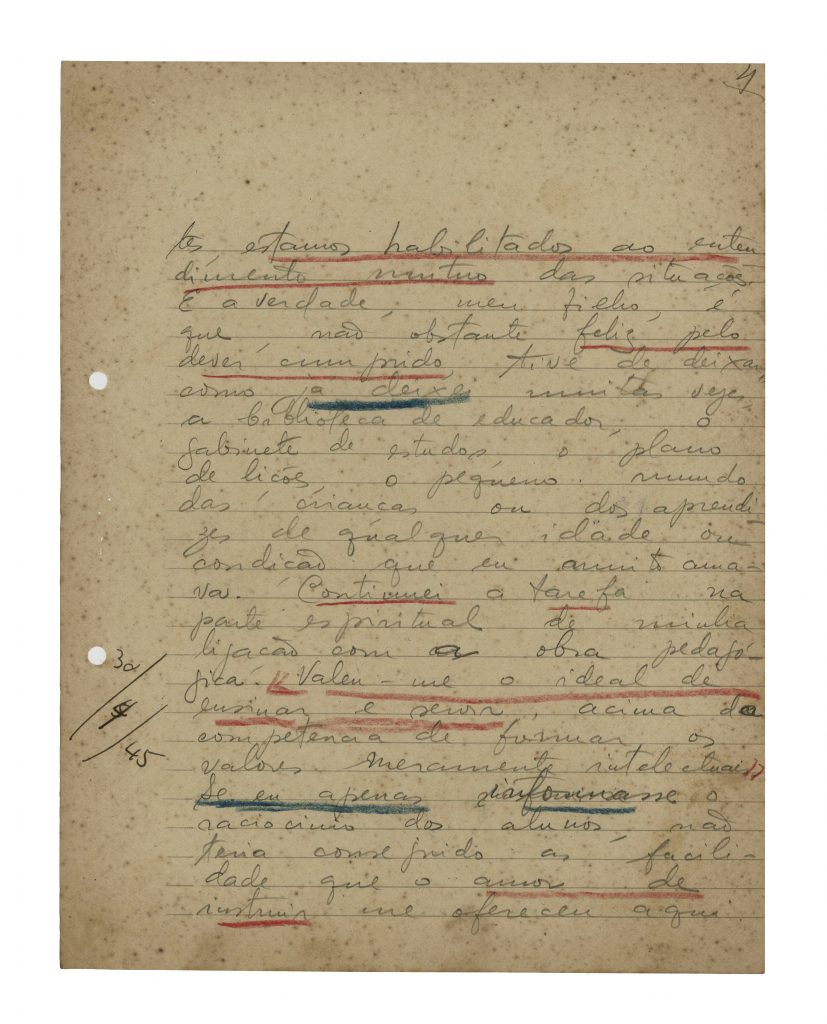 4
tes, estamos habilitados ao enten
dimento mutuo das situações.
E a verdade, meu filho, é
que, não obstante feliz pelo
dever cumprido, tive de deixar,
como já deixei muitas vezes,
a biblioteca de educador, o
gabinete de estudos, o plano
de lições, o pequeno mundo
das crianças ou dos aprendi-
zes de qualquer idade ou
condição que eu muito ama-
va. Continuei a tarefa na
parte espiritual de minha
ligação com a obra pedagó-
gica. Valeu-me o ideal de
ensinar e servir, acima da
competencia de formar os
valores meramente intelectuais
Se eu apenas informasse o
raciocinio dos alunos, não
teria conseguido as facili-
dade que o amor de
instruir me ofereceu aqui.
30/4/45